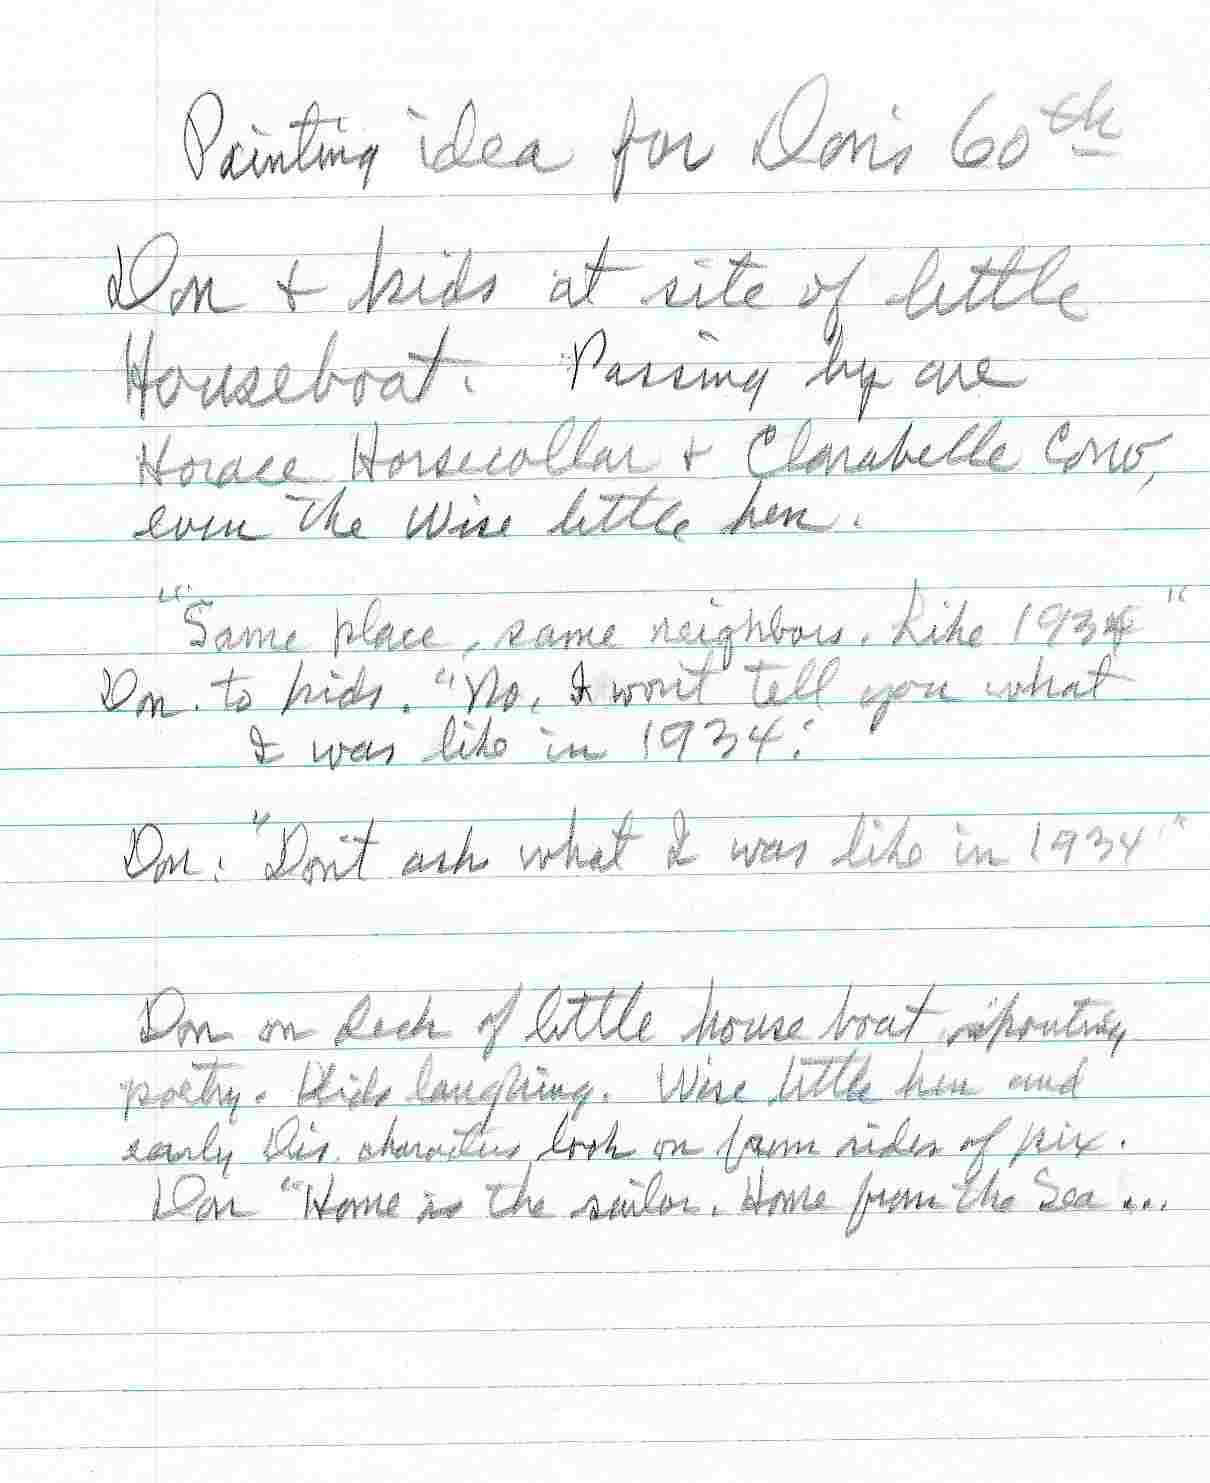 Painting idea for Don's 60th
Don + kids at site of little
Houseboat. Passing by are
Horace Horsecollar + Clarabelle Cow,
even The Wise little hen.
"Same place, same neighbors. Like 1934"
Don. to kids. "No, I won't tell you what
I was like in 1934."
Don: "Don't ask what I was like in 1934"
Don on deck of little house boat spouting
poetry. Kids laughing. Wise little hen and
early Dis. characters look on from sides of pix.
Don "Home is the sailor. Home from the Sea...